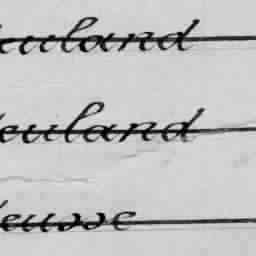 euland
euland
eusse